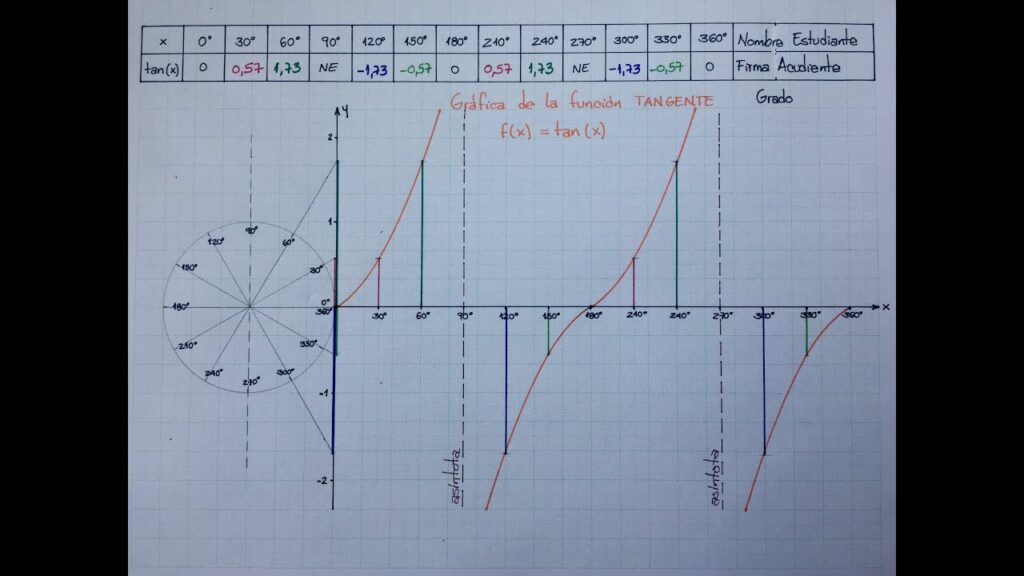 x 0° 30° 60° 90° 120° 150° 180° 210° 240° 270° 300° 330° 360° Nombre Estudiante
tan(x) 0 0,57 1,73 NE -1,73 -0,57 0 0,57 1,73 NE -1,73 -0,57 0 Firma Acudiente
Gráfica de la función TANGENTE
f(x) = tan(x)
Grado
y
2
1
-1
-2
90°
120° 60°
150° 30°
180° 0°
360°
210° 330°
240° 300°
270°
30° 60° 90° 120° 150° 180° 240° 240° 270° 300° 330° 360° x
asíntota
asíntota